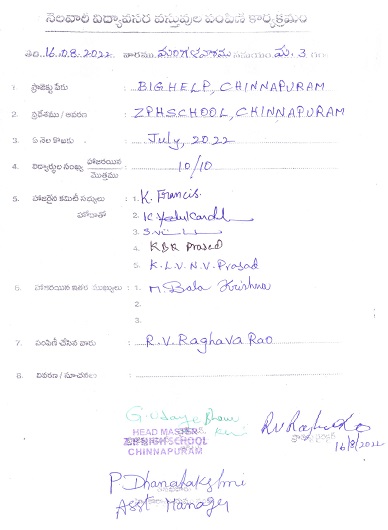 నెలవారీ విద్యావసర వస్తువుల పంపిణీ కార్యక్రమం
తేది. 16.08.2022 వారము మంగళవారము సమయం మ. 3 గం.
1. ప్రాజెక్టు పేరు : BIGHELP, CHINNAPURAM
2. ప్రదేశము / ఆవరణ : ZPHSCHOOL, CHINNAPURAM
3. ఏ నెల కొరకు : July, 2022
4. విద్యార్థుల సంఖ్య హాజరయిన / మొత్తము : 10/10
5. హాజరైన కమిటీ సభ్యులు : 1. K. Francis.
హోదాతో 2.
3.
4. KBR Prasad
5. K.L.V.N.V. Prasad
6. ఇతర ముఖ్యులు : 1. M Bala Krishna
2.
3.
7. పంపిణీ చేసిన వారు : R.V. Raghava Rao
8. వివరణ / సూచనలు :
HEAD MASTER
Z.P.HIGH SCHOOL
CHINNAPURAM
16/8/2022
P. Dhanalakshmi
Asst Manager